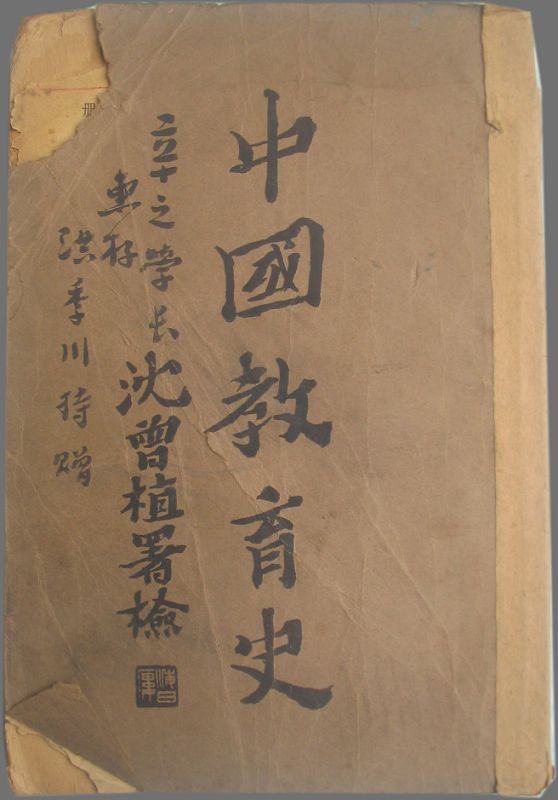 中國教育史
沈曾植署檢
之學長
惠存
洪季川特贈
册